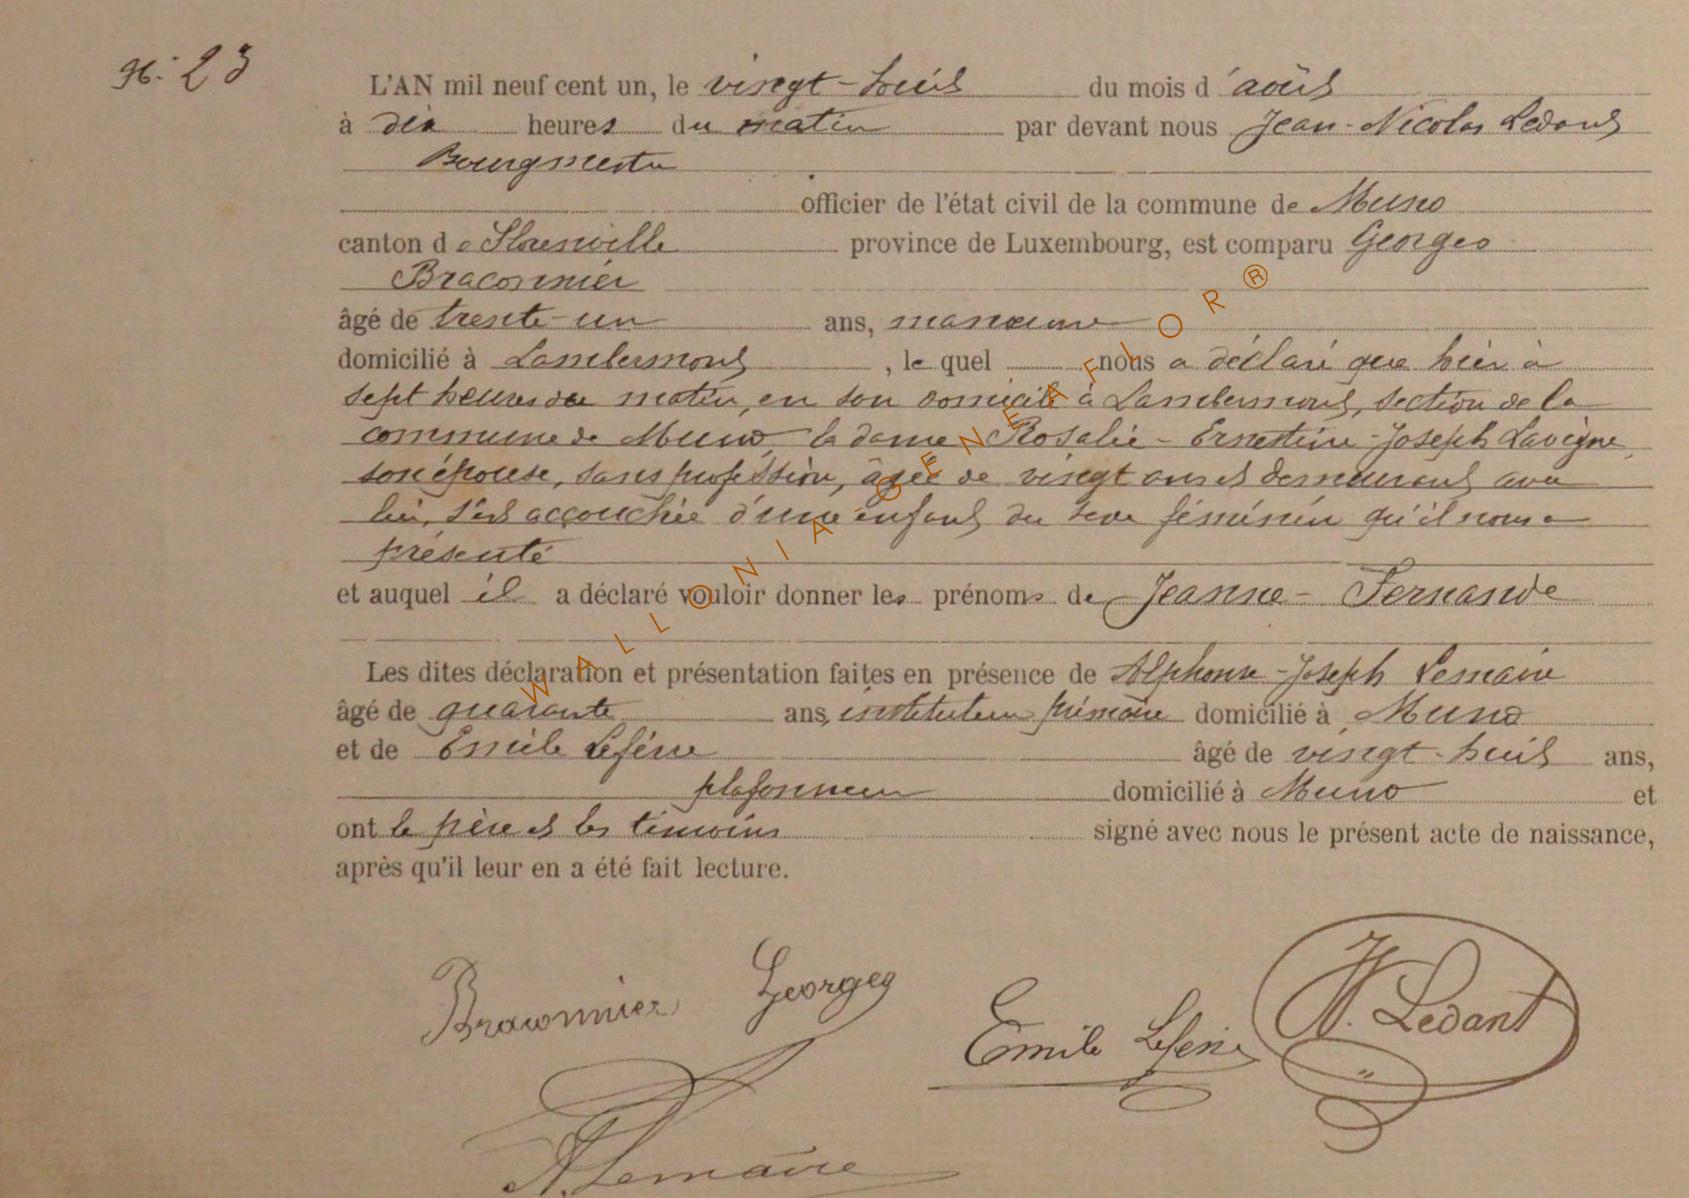 N° 23
L'AN mil neuf cent un, le vingt-huit du mois d'août
à dix heures du matin par devant nous Jean-Nicolas Ledant
Bourgmestre
officier de l'état civil de la commune de Muno
canton de Florenville province de Luxembourg, est comparu Georges
Braconnier
âgé de trente-un ans, manœuvre
domicilié à Lambermont, lequel nous a déclaré que hier à
sept heures du matin, en son domicile à Lambermont, section de la
commune de Muno, la dame Rosalie-Ernestine-Joseph Lavigne,
son épouse, sans profession, âgée de vingt ans et demeurant avec
lui, s'est accouchée d'une enfant du sexe féminin qu'il nous a
présenté
et auquel il a déclaré vouloir donner les prénoms de Jeanne-Fernande
Les dites déclaration et présentation faites en présence de Alphonse-Joseph Lemaire
âgé de quarante ans, instituteur primaire domicilié à Muno
et de Emile Lefèvre âgé de vingt-huit ans,
plafonneur domicilié à Muno et
ont le père et les témoins signé avec nous le présent acte de naissance,
après qu'il leur en a été fait lecture.
Braconnier Georges
Emile Lefèvre
JN. Ledant
A. Lemaire
WALLONIA-GENEAFLOR®